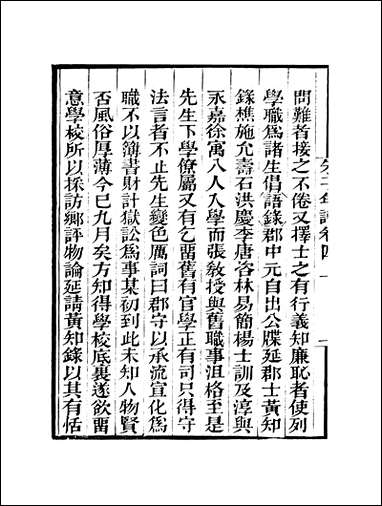 問難者接之不倦又擇士之有行義知廉恥者使列
學職爲諸生倡語錄郡中元自出公牒延郡士黃知
錄樵施允壽石洪慶李唐咨林易簡楊士訓及淳與
永嘉徐寓八人入學而張教授與舊職事沮格至是
先生下學僚屬又有乞畱舊有官學正有司只得守
法言者不止先生變色厲詞曰郡守以承流宣化爲
職不以簿書財計獄訟爲事某初到此未知人物賢
否風俗厚薄今巳九月矣方知得學校底裏遂欲畱
意學校所以採訪鄉評物論延請黃知錄以其有恬